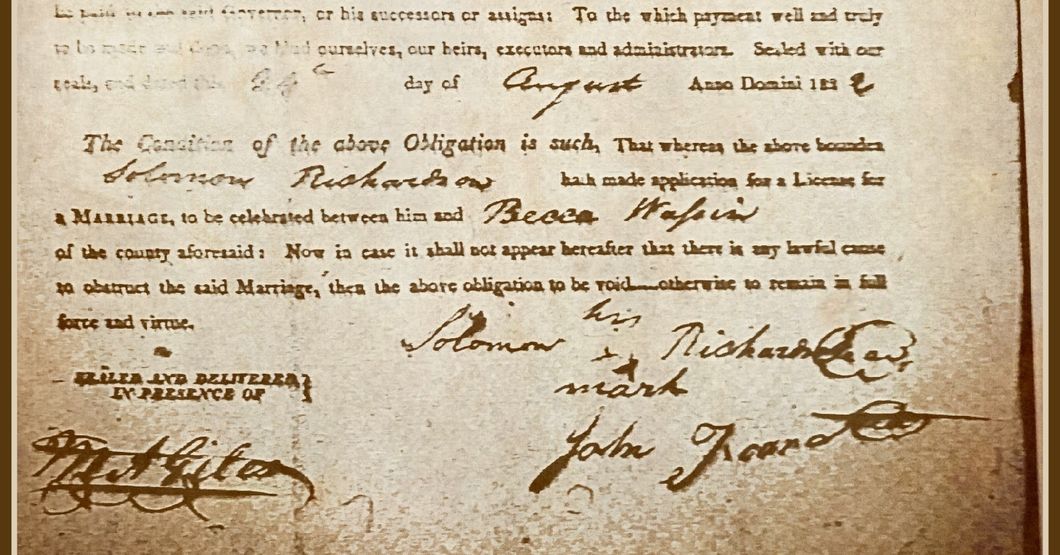 be paid to the said Governor, or his successors or assigns: To the which payment well and truly
to be made and done, we bind ourselves, our heirs, executors and administrators. Sealed with our
seals, and dated this day of August Anno Domini 182
The Condition of the above Obligation is such, That whereas the above bounden
Solomon Richardson hath made application for a License for
a MARRIAGE, to be celebrated between him and Becca
of the county aforesaid: Now in case it shall not appear hereafter that there is any lawful cause
to obstruct the said Marriage, then the above obligation to be void—otherwise to remain in full
force and virtue.
his
Solomon x Richardson
mark
SEALED AND DELIVERED
IN PRESENCE OF
John